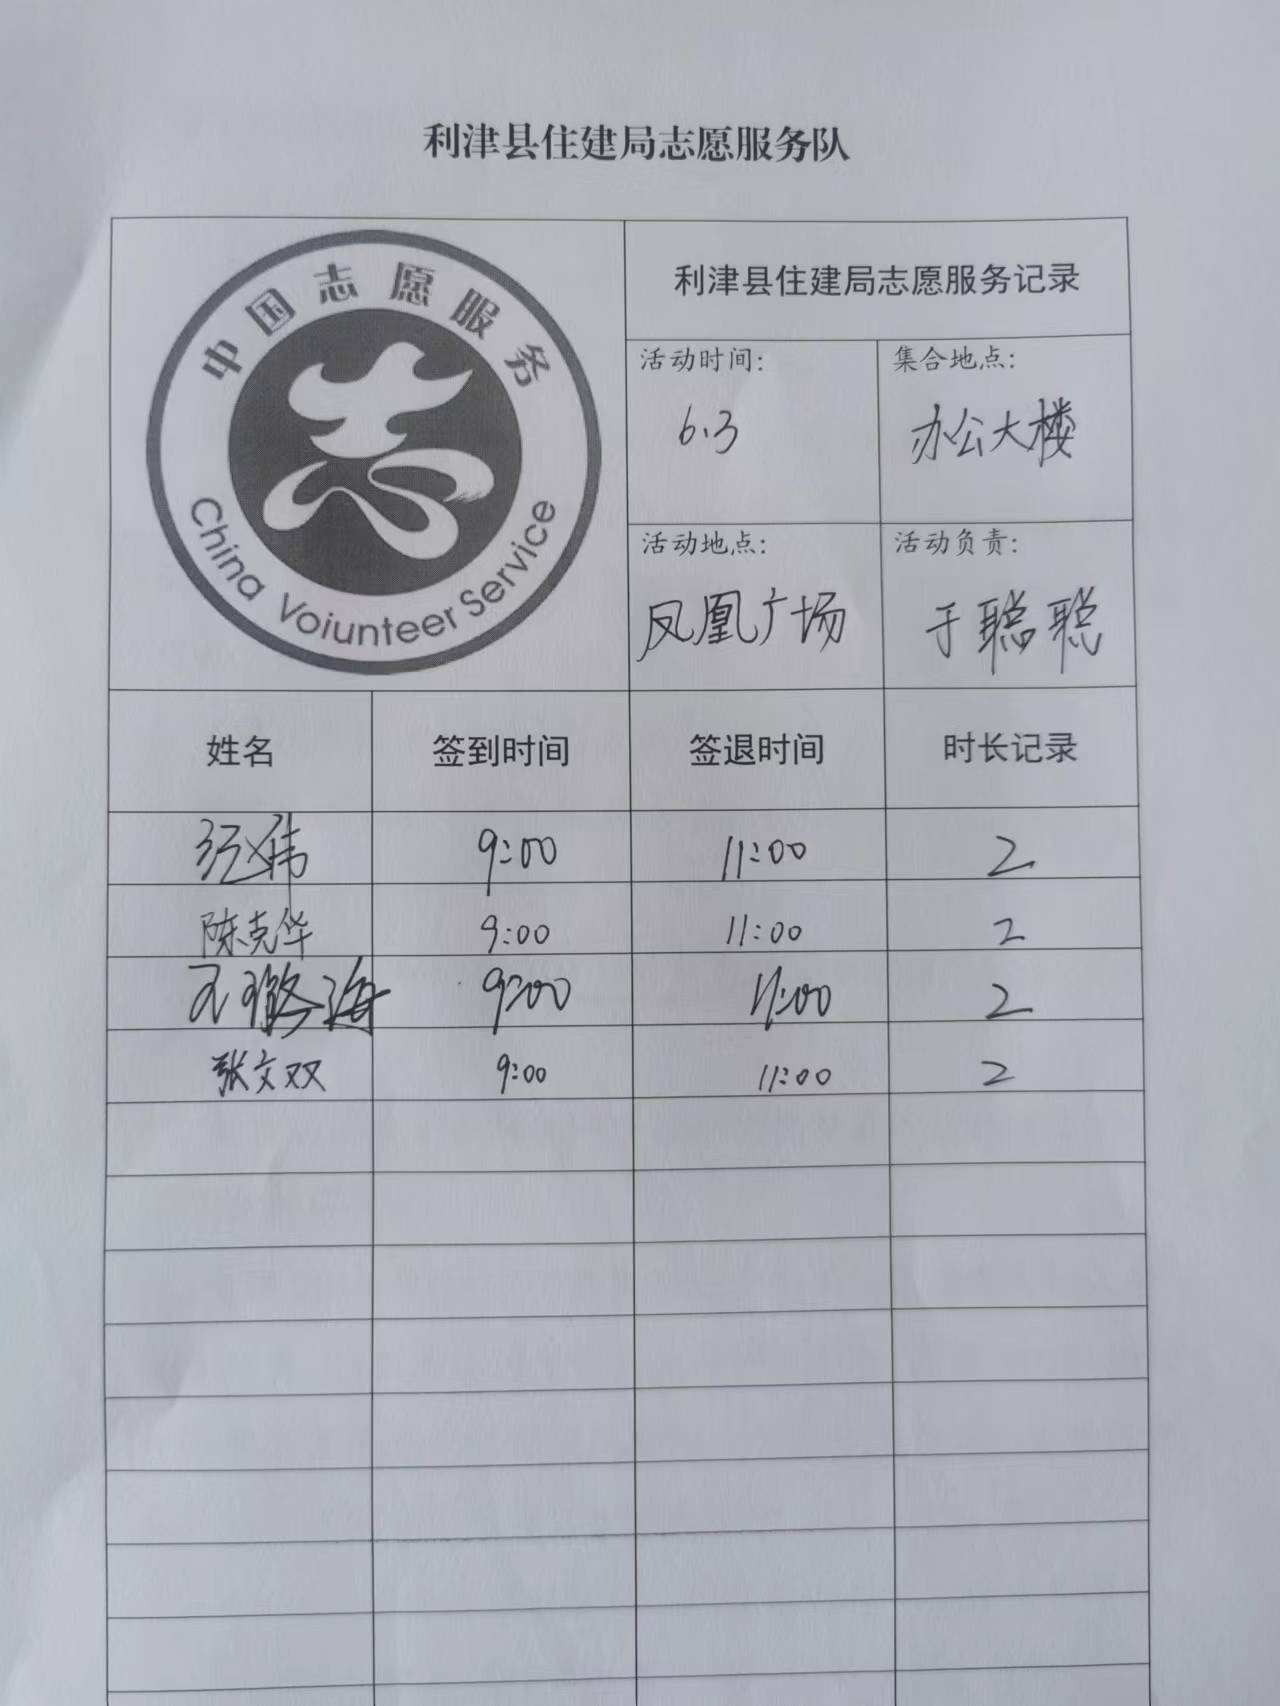 利津县住建局志愿服务队
中国志愿服务
China Voiunteer Service
利津县住建局志愿服务记录
活动时间: 集合地点:
6.3 办公大楼
活动地点: 活动负责:
凤凰广场 于聪聪
姓名 签到时间 签退时间 时长记录
9:00 11:00 2
陈克华 9:00 11:00 2
9:00 11:00 2
张文双 9:00 11:00 2